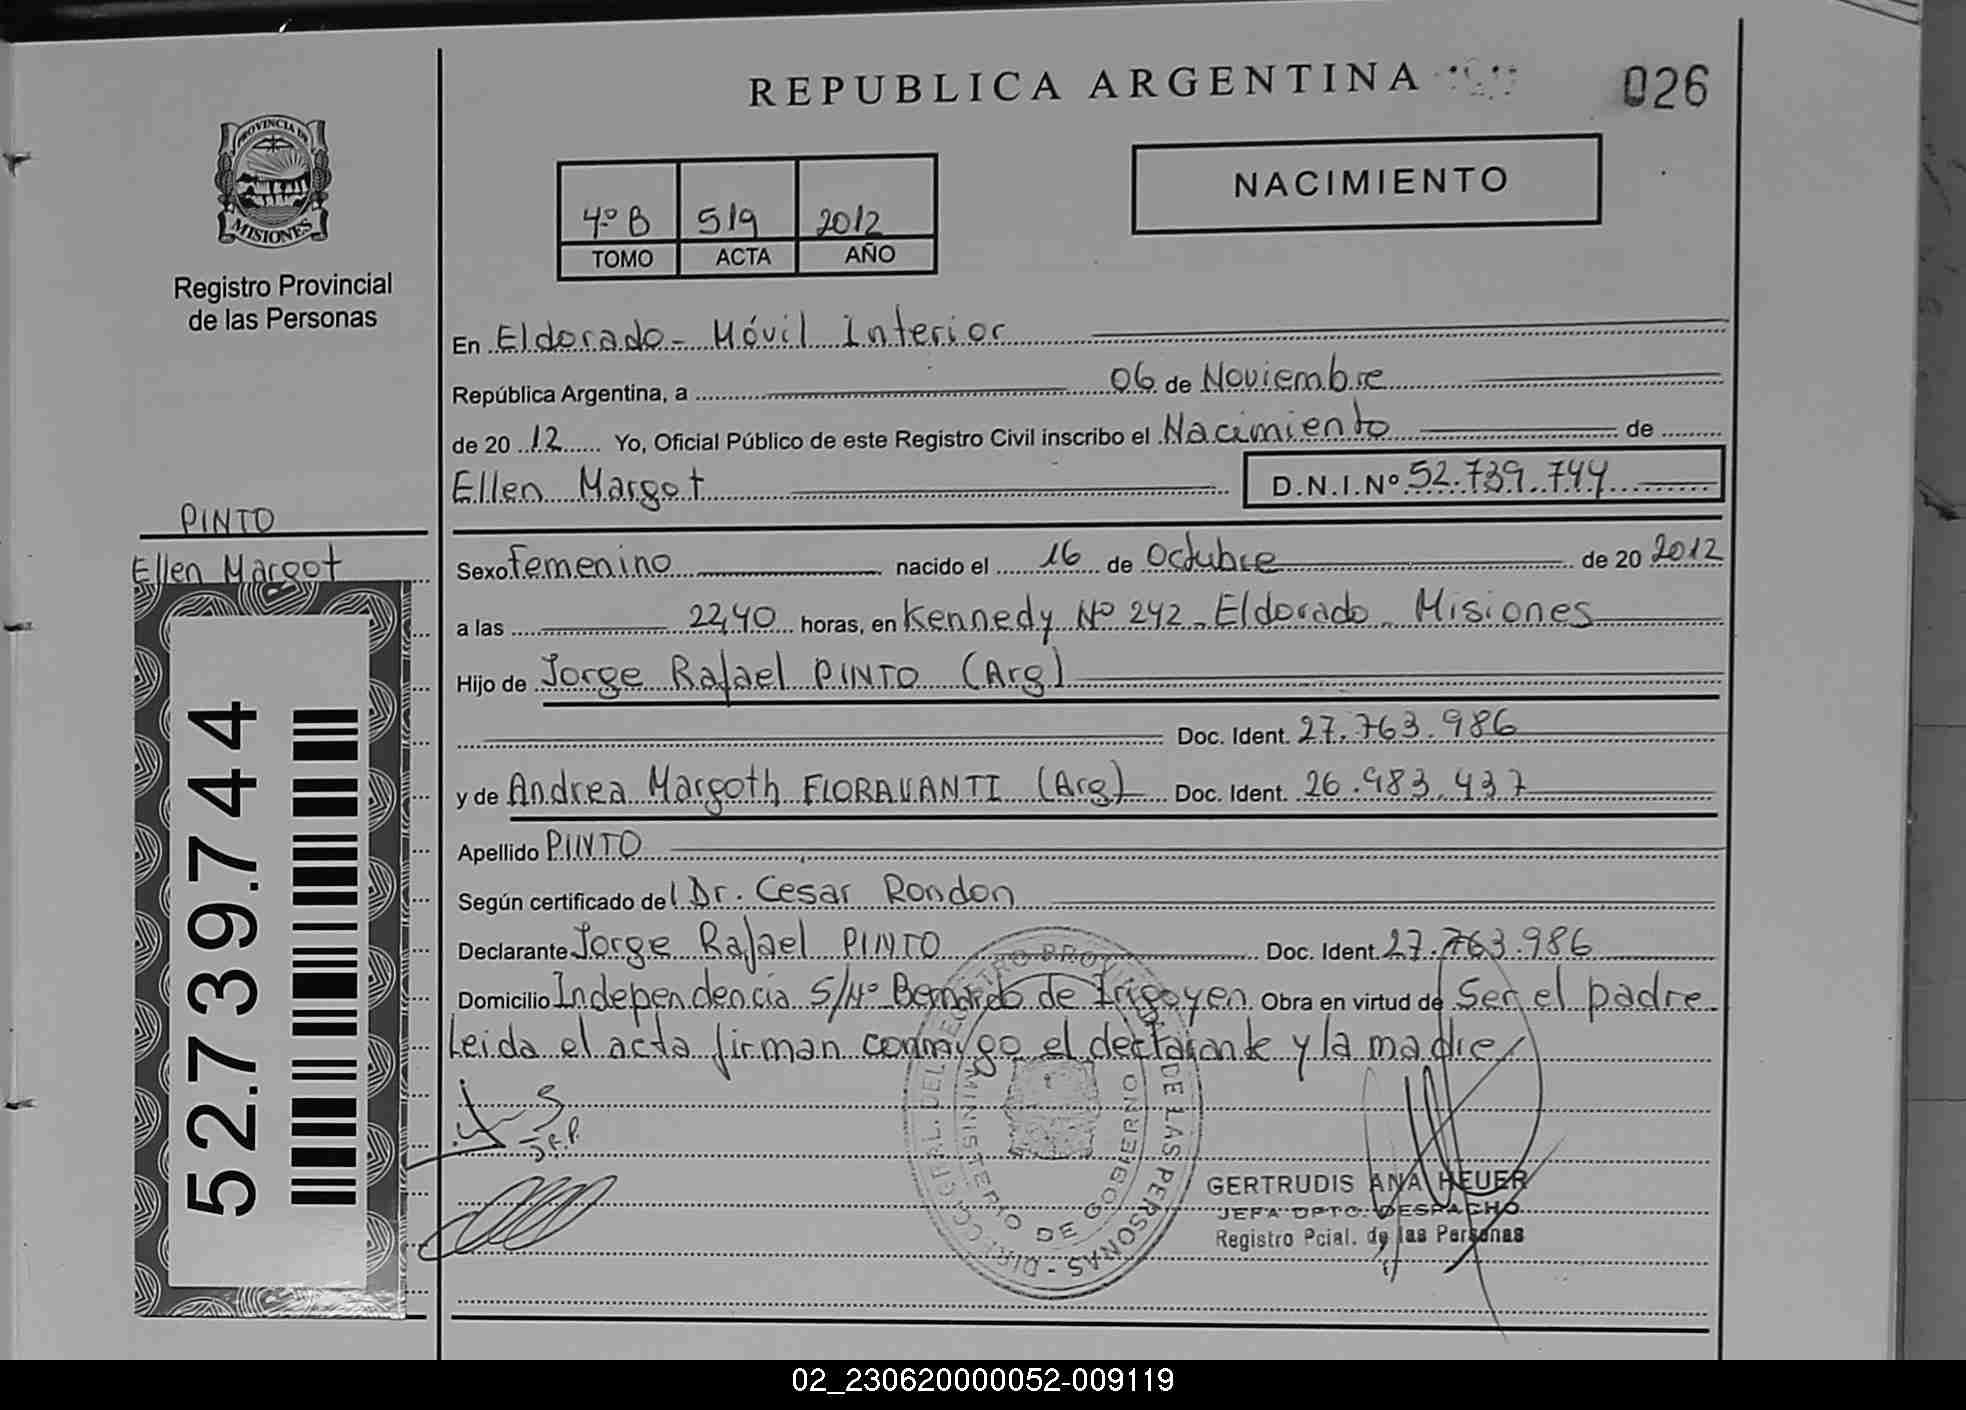 REPUBLICA ARGENTINA
026
PROVINCIA DE
MISIONES
Registro Provincial
de las Personas
NACIMIENTO
4º B 519 2012
TOMO ACTA AÑO
En Eldorado - Móvil Interior
República Argentina, a 06 de Noviembre
de 20 12 Yo, Oficial Público de este Registro Civil inscribo el Nacimiento de
Ellen Margot D.N.I.Nº 52.739.744
PINTO
Ellen Margot
Sexo Femenino nacido el 16 de Octubre de 20 2012
a las 22,40 horas, en Kennedy Nº 242 - Eldorado - Misiones
Hijo de Jorge Rafael PINTO (Arg)
Doc. Ident. 27.763.986
y de Andrea Margoth FIORAVANTI (Arg) Doc. Ident. 26.983.437
Apellido PINTO
Según certificado del Dr. Cesar Rondon
Declarante Jorge Rafael PINTO Doc. Ident. 27.763.986
Domicilio Independencia S/Nº Bernardo de Irigoyen Obra en virtud de Ser el padre
Leida el acta firman conmigo el declarante y la madre
52.739.744
J.R.P.
DIRECC. GRAL. DEL REGISTRO PROVINCIAL DE LAS PERSONAS -
MINISTERIO DE GOBIERNO
GERTRUDIS ANA HEUER
JEFA DPTO. DESPACHO
Registro Pcial. de las Personas
02_230620000052-009119